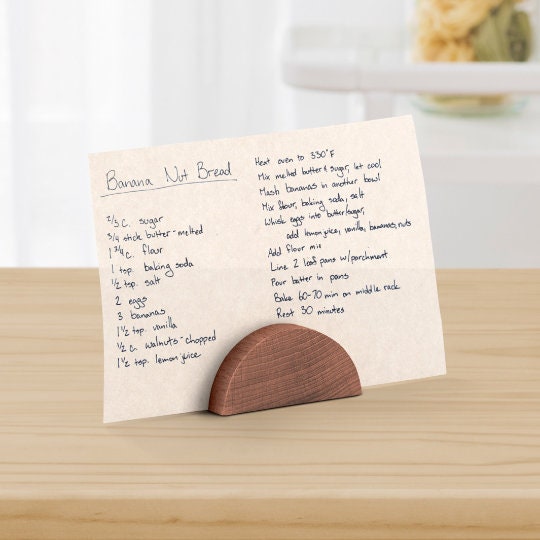 Banana Nut Bread
2/3 c. sugar
3/4 stick butter - melted
1 3/4 c. flour
1 tsp. baking soda
1/2 tsp. salt
2 eggs
3 bananas
1 1/2 tsp. vanilla
1/2 c. walnuts - chopped
1 1/2 tsp. lemon juice
Heat oven to 330°F
Mix melted butter & sugar, let cool
Mash bananas in another bowl
Mix flour, baking soda, salt
Whisk eggs into butter/sugar,
add lemon juice, vanilla, bananas, nuts
Add flour mix
Line 2 loaf pans w/parchment
Pour batter in pans
Bake 60-70 min on middle rack
Rest 30 minutes